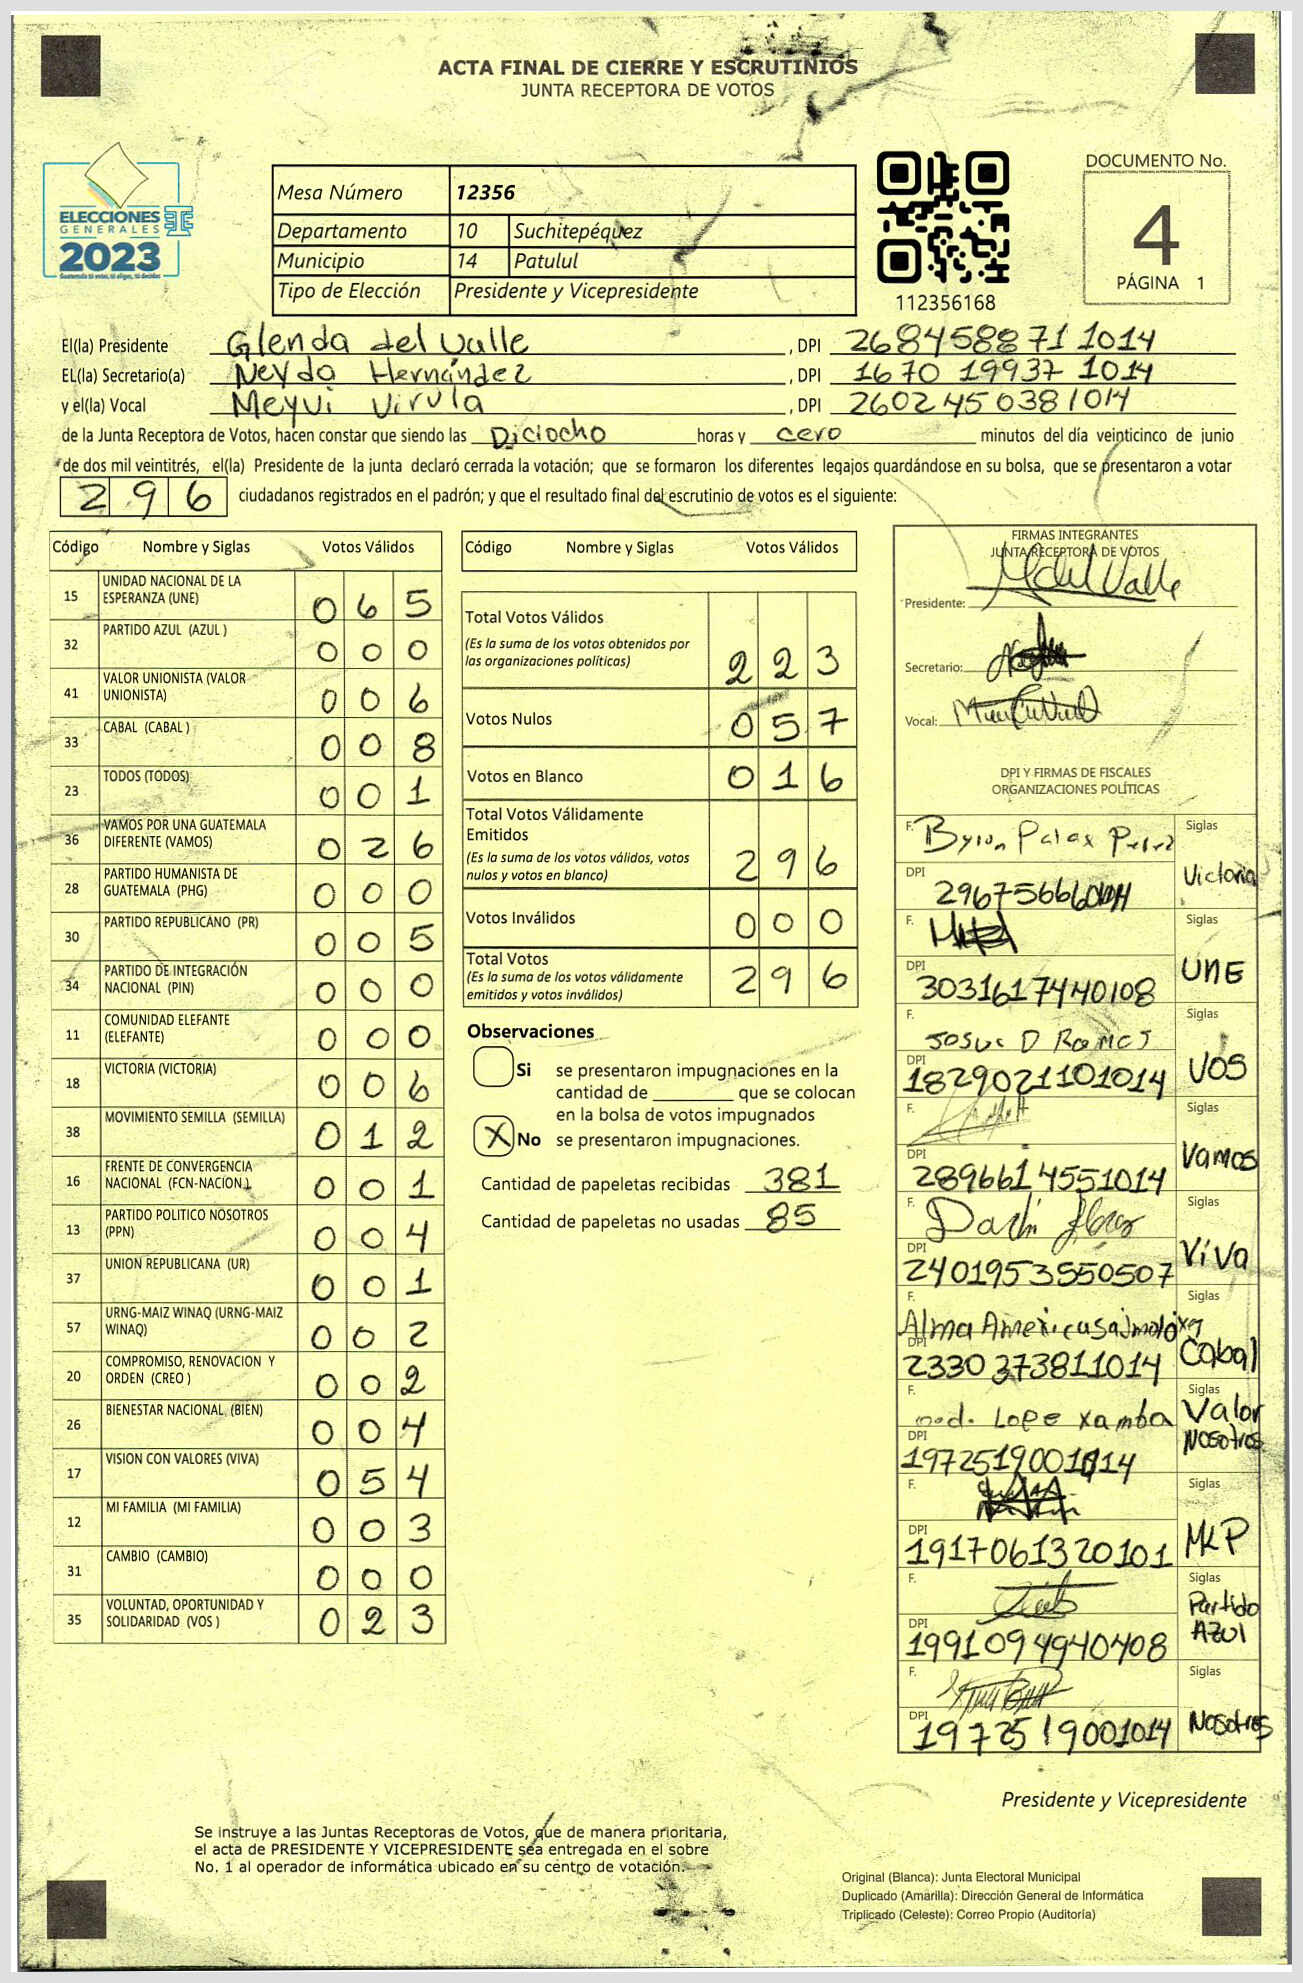 ACTA FINAL DE CIERRE Y ESCRUTINIOS
JUNTA RECEPTORA DE VOTOS
ELECCIONES
GENERALES
2023
Mesa Número 12356
Departamento 10 Suchitepéquez
Municipio 14 Patulul
Tipo de Elección Presidente y Vicepresidente
112356168
DOCUMENTO No.
4
PÁGINA 1
El(la) Presidente Glenda del Valle , DPI 2684588711014
EL(la) Secretario(a) Neyda Hernández , DPI 1670 19937 1014
y el(la) Vocal Meyvi Virula , DPI 2602450381014
de la Junta Receptora de Votos, hacen constar que siendo las Diciocho horas y cero minutos del día veinticinco de junio
de dos mil veintitrés, el(la) Presidente de la junta declaró cerrada la votación; que se formaron los diferentes legajos guardándose en su bolsa, que se presentaron a votar
296 ciudadanos registrados en el padrón; y que el resultado final del escrutinio de votos es el siguiente:
Código Nombre y Siglas Votos Válidos
15 UNIDAD NACIONAL DE LA ESPERANZA (UNE) 065
32 PARTIDO AZUL (AZUL ) 000
41 VALOR UNIONISTA (VALOR UNIONISTA) 006
33 CABAL (CABAL ) 008
23 TODOS (TODOS) 001
36 VAMOS POR UNA GUATEMALA DIFERENTE (VAMOS) 026
28 PARTIDO HUMANISTA DE GUATEMALA (PHG) 000
30 PARTIDO REPUBLICANO (PR) 005
34 PARTIDO DE INTEGRACIÓN NACIONAL (PIN) 000
11 COMUNIDAD ELEFANTE (ELEFANTE) 000
18 VICTORIA (VICTORIA) 006
38 MOVIMIENTO SEMILLA (SEMILLA) 012
16 FRENTE DE CONVERGENCIA NACIONAL (FCN-NACION ) 001
13 PARTIDO POLITICO NOSOTROS (PPN) 004
37 UNION REPUBLICANA (UR) 001
57 URNG-MAIZ WINAQ (URNG-MAIZ WINAQ) 002
20 COMPROMISO, RENOVACION Y ORDEN (CREO ) 002
26 BIENESTAR NACIONAL (BIEN) 004
17 VISION CON VALORES (VIVA) 054
12 MI FAMILIA (MI FAMILIA) 003
31 CAMBIO (CAMBIO) 000
35 VOLUNTAD, OPORTUNIDAD Y SOLIDARIDAD (VOS ) 023
Código Nombre y Siglas Votos Válidos
Total Votos Válidos 223
(Es la suma de los votos obtenidos por
las organizaciones políticas)
Votos Nulos 057
Votos en Blanco 016
Total Votos Válidamente
Emitidos 296
(Es la suma de los votos válidos, votos
nulos y votos en blanco)
Votos Inválidos 000
Total Votos 296
(Es la suma de los votos válidamente
emitidos y votos inválidos)
Observaciones
Si se presentaron impugnaciones en la
cantidad de ________ que se colocan
en la bolsa de votos impugnados
X No se presentaron impugnaciones.
Cantidad de papeletas recibidas 381
Cantidad de papeletas no usadas 85
FIRMAS INTEGRANTES
JUNTA RECEPTORA DE VOTOS
Presidente: delValle
Secretario:
Vocal:
DPI Y FIRMAS DE FISCALES
ORGANIZACIONES POLÍTICAS
F. Byron Siglas
DPI Victoria
F. Siglas
DPI 3031617440108 UNE
F. Josue D Ramos Siglas
DPI 1829021101014 VOS
F. Siglas
DPI 2896614551014 Vamos
F. Siglas
DPI 2401953550507 ViVa
F. Alma Siglas
DPI 2330373811014 Cabal
F. Lope Xamba Siglas Valor
DPI 1972519001014 Nosotros
F. Siglas
DPI 1917061320101 MLP
F. Siglas Partido
DPI 1991094940408 AZUl
F. Siglas
DPI 1972519001014 Nosotros
Presidente y Vicepresidente
Se instruye a las Juntas Receptoras de Votos, que de manera prioritaria,
el acta de PRESIDENTE Y VICEPRESIDENTE sea entregada en el sobre
No. 1 al operador de informática ubicado en su centro de votación.
Original (Blanca): Junta Electoral Municipal
Duplicado (Amarilla): Dirección General de Informática
Triplicado (Celeste): Correo Propio (Auditoría)